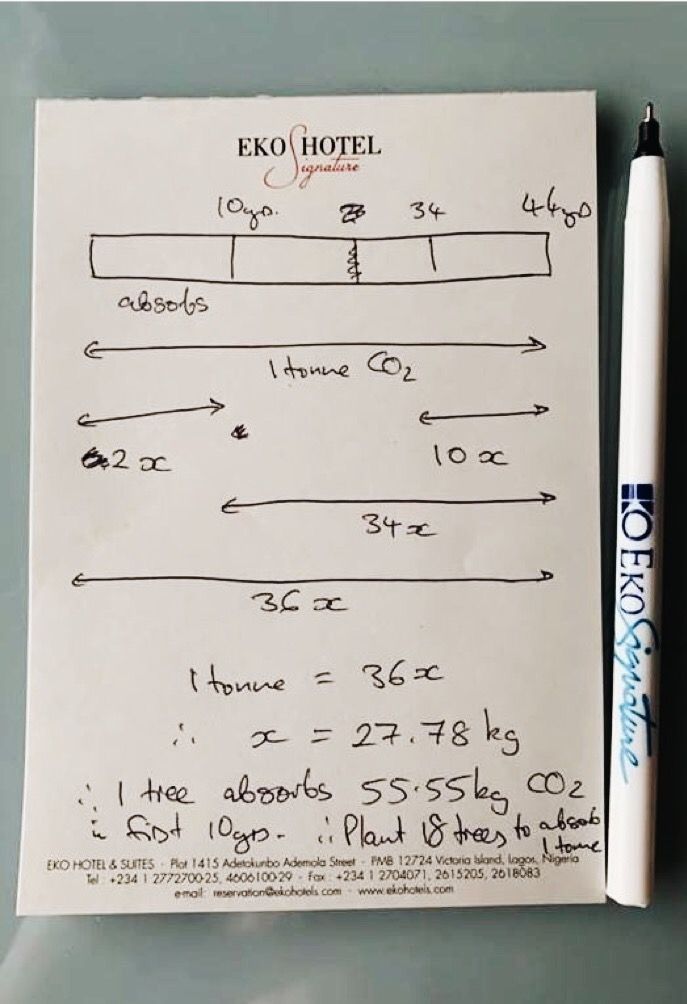 EKO HOTEL
Signature
10yrs. 34 44yrs
absorbs
1 tonne CO2
2x
10x
34x
36x
1 tonne = 36x
∴ x = 27.78 kg
∴ 1 tree absorbs 55.55kg CO2
in first 10yrs. ∴ Plant 18 trees to absorb
1 tonne
EKO HOTEL & SUITES - Plot 1415 Adetokunbo Ademola Street - PMB 12724 Victoria Island, Lagos, Nigeria
Tel : +234 1 2772700-25, 4606100-29 - Fax : +234 1 2704071, 2615205, 2618083
e-mail: reservation@ekohotels.com - www.ekohotels.com
EKO Signature